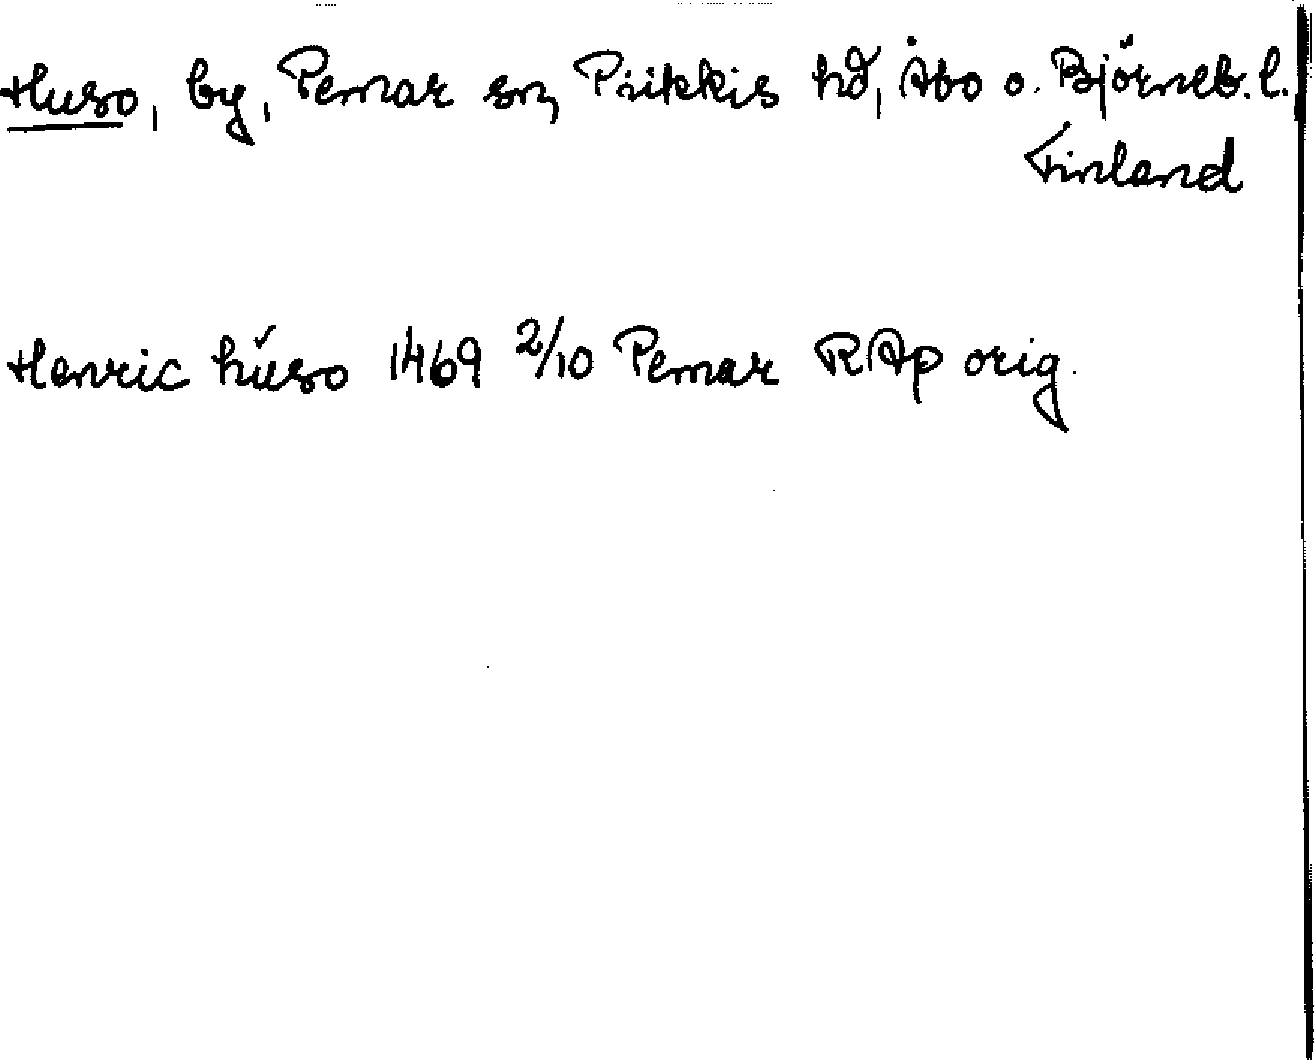 Huso, by, Pemar sn, Piikkis hd, Åbo o. Björneb. l.
Finland
Henric húso 1469 2/10 Pemar RAp orig.